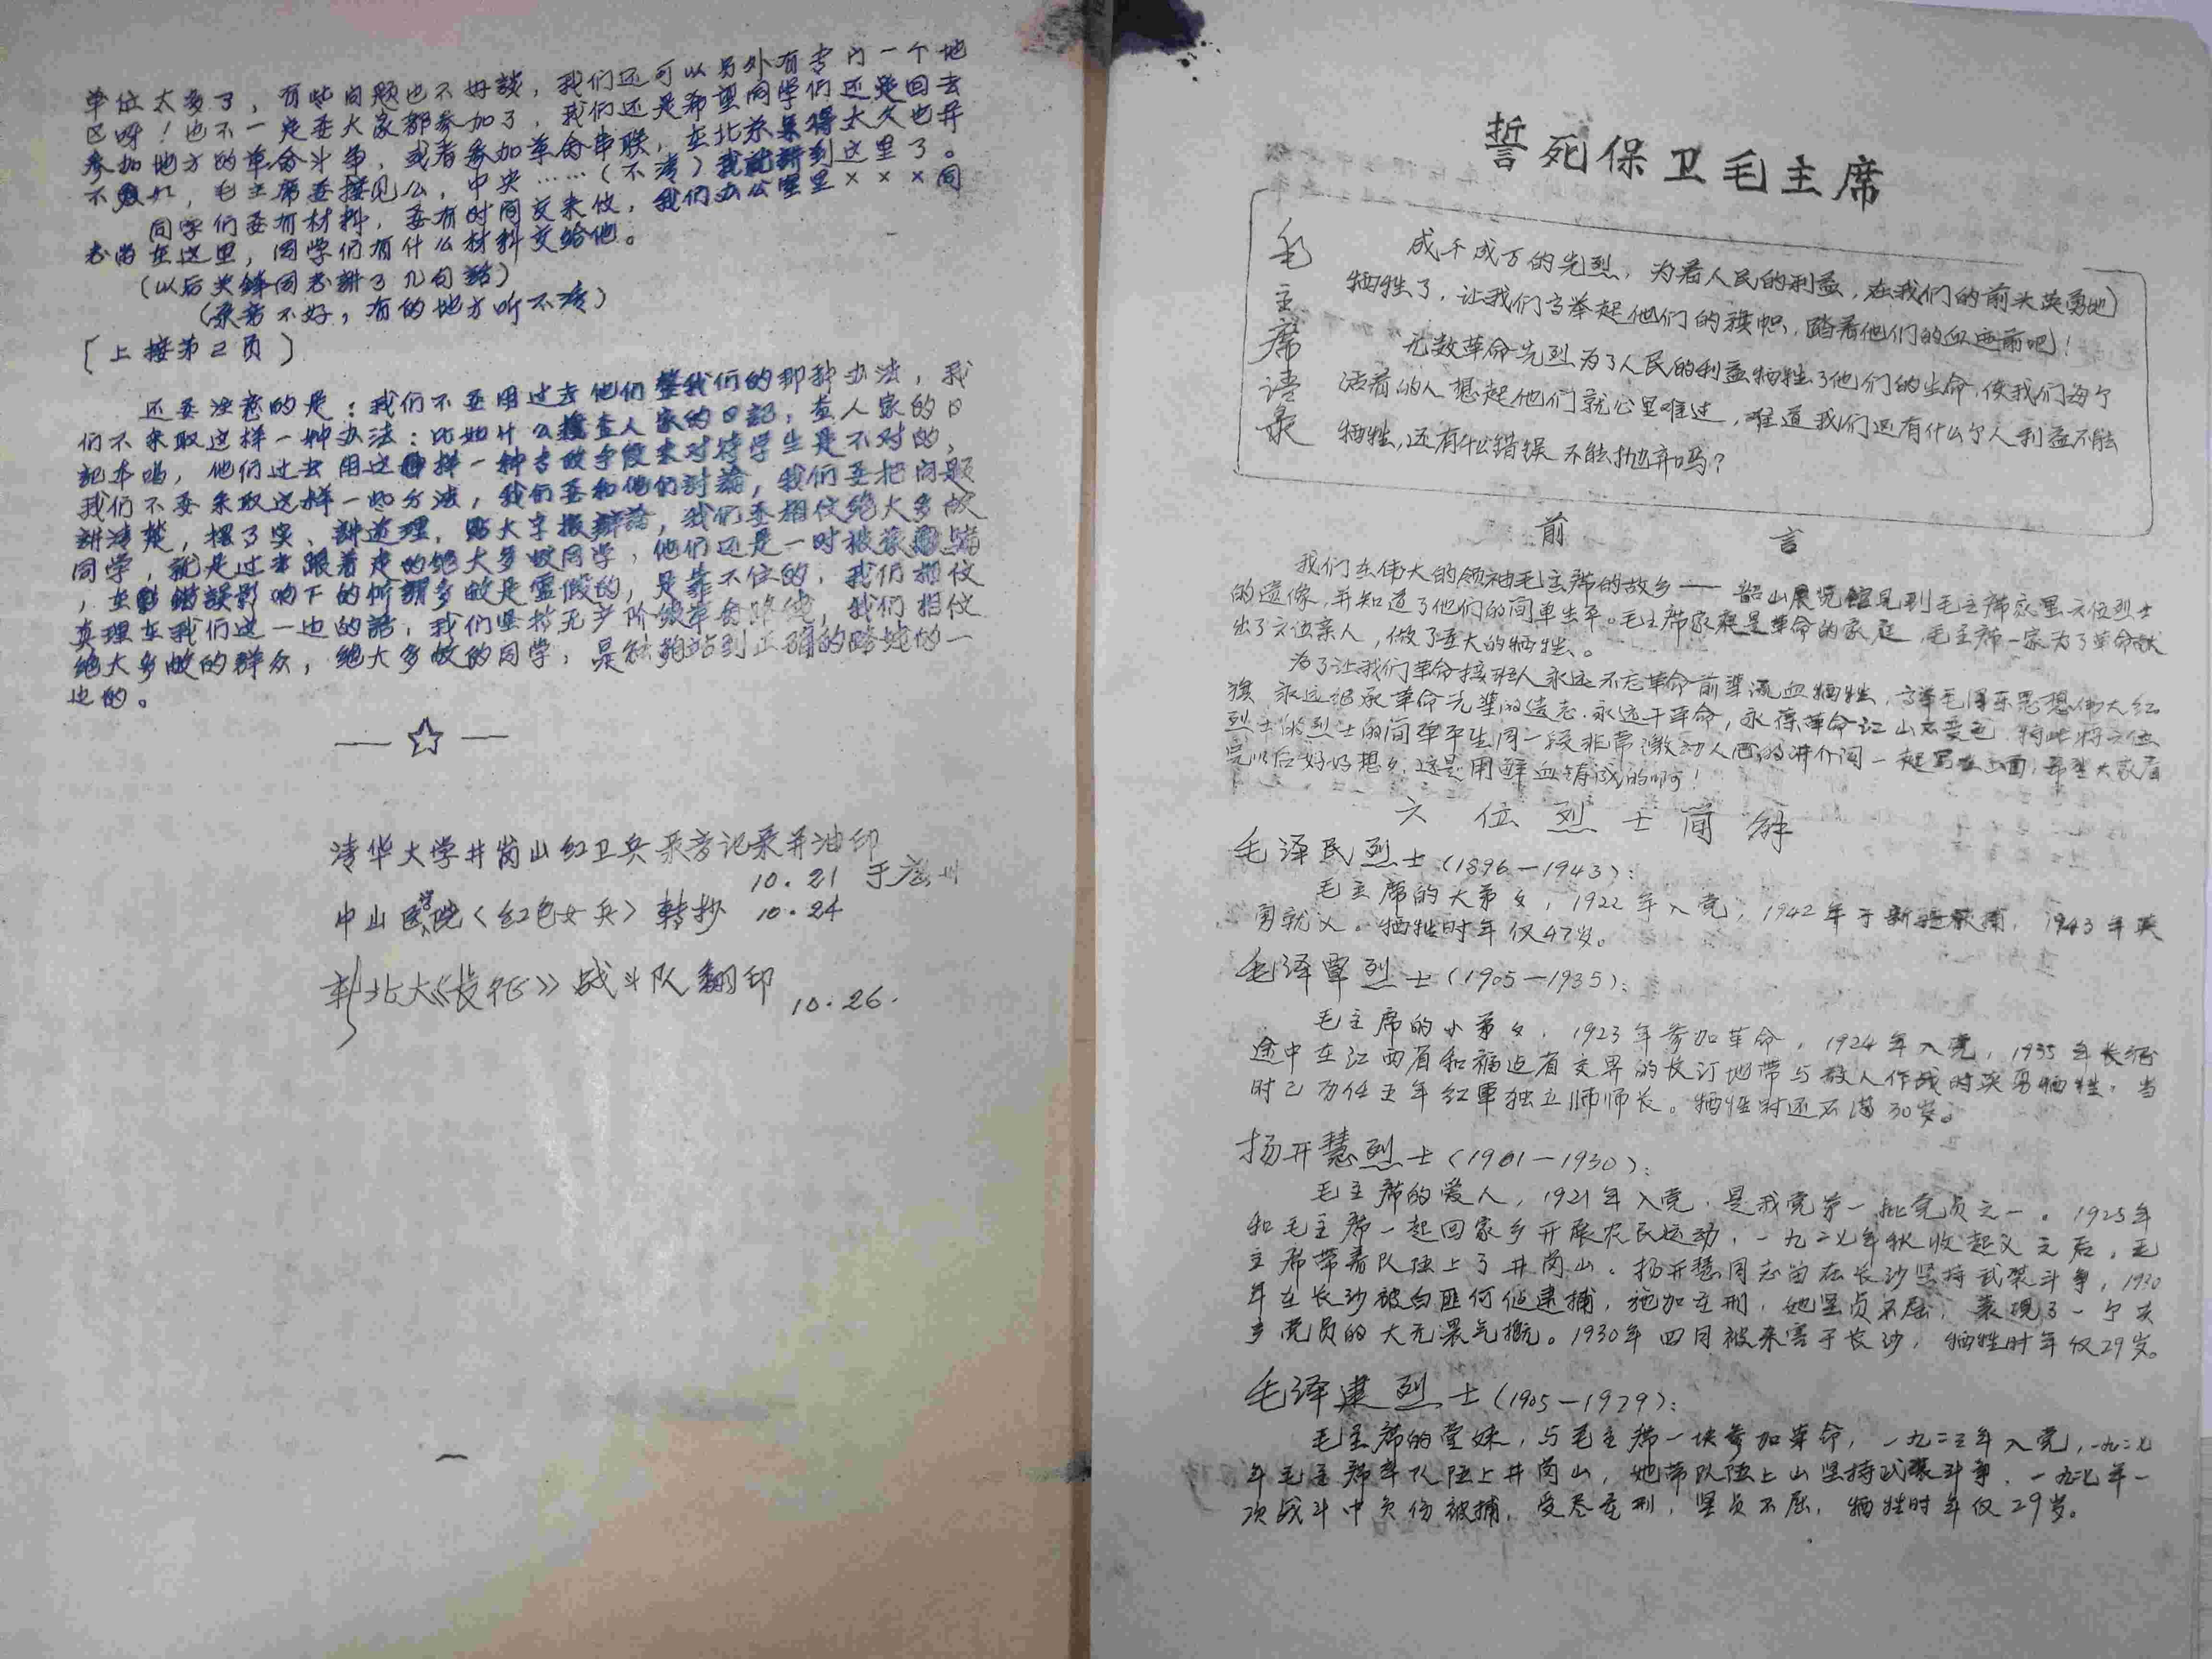 单位太多了，有些问题也不好談，我们还可以另外有专门一个地
区呀！也不一定要大家都参加了，我们还是希望同学们还是回去
参加地方的革命斗争，或者参加革命串联，在北京呆得太久也并
不　　，毛主席要接见么，中央……（不清）我就讲到这里了。
同学们要有材料，要有时间交来仪，我们办公室里×××同
志尚在这里，同学们有什么材料交给他。
（以后关鋒同志讲了几句話）
（录音不好，有的地方听不清）
〔上接第2页〕
还要注意的是：我们不要用过去他们整我们的那种办法，我
们不采取这样一种办法：比如什么搜查人家的日記，查人家的日
記本啦，他们过去用这种样一种专政手段来对待学生是不对的，
我们不要采取这样一些方法，我们要和他们討論，我们要把问题
讲清楚，摆事实、讲道理，贴大字报辯論，我们要相仪绝大多数
同学，就是过去跟着走的绝大多数同学，他们还是一时被蒙
，在　錯誤影响下的所謂多数是虚假的，是靠不住的，我们相仪
真理在我们这一边的話，我们坚持无产阶级革命路线，我们相仪
绝大多数的群众，绝大多数的同学，是能夠站到正确的路线的一
边的。
—☆—
清华大学井岗山红卫兵录音记录并油印
10.21 于
中山医学院〈红色女兵〉转抄 10.24
新北大《长征》战斗队翻印 10.26.
誓死保卫毛主席
毛主席语录
成千成万的先烈，为着人民的利益，在我们的前头英勇地
牺牲了，让我们高举起他们的旗帜，踏着他们的血迹前吧！
无数革命先烈为了人民的利益牺牲了他们的生命，使我们每个
活着的人想起他们就心里难过，难道我们还有什么个人利益不能
牺牲，还有什么错误不能抛弃吗？
前言
我们在伟大的领袖毛主席的故乡——韶山展览館見到毛主席家里六位烈士
的遗像，并知道了他们的简单生平。毛主席家庭是革命的家庭，毛主席一家为了革命献
出了六位亲人，做了重大的牺牲。
为了让我们革命接班人永远不忘革命前辈流血牺牲，高举毛泽东思想伟大红
旗 永远继承革命先辈的遗志．永远干革命，永保革命江山不变色，特此将六位
烈士的烈士的简单平生同一段非常激动人心的讲介词一起写在上面，希望大家看
完以后好好想々，这是用鲜血铸成的啊！
六位烈士简介
毛泽民烈士（1896—1943）：
毛主席的大弟々，1922年入党，1942年于新疆被捕，1943年英
勇就义。牺牲时年仅47岁。
毛泽覃烈士（1905—1935）：
毛主席的小弟々，1923年参加革命，1924年入党，1935年长征
途中在江西省和福建省交界的长汀地带与敌人作战时英勇牺牲，当
时已历任五年红軍独立师师长。牺牲时还不满30岁。
扬开慧烈士（1901—1930）：
毛主席的爱人，1921年入党，是我党第一批党员之一。1925年
和毛主席一起回家乡开展农民运动，一九二七年秋收起义之后，毛
主席带着队伍上了井岗山。扬开慧同志留在长沙坚持武装斗争，1930
年在长沙被白匪何健逮捕，施加重刑，她坚贞不屈，表现了一个共
产党员的大无畏气概。1930年四月被杀害于长沙，牺牲时年仅29岁。
毛泽建烈士（1905—1929）：
毛主席的堂妹，与毛主席一块参加革命，一九二三年入党，一九二七
年毛主席率队伍上井岗山，她带队伍上山坚持武装斗争，一九二七年一
次战斗中负伤被捕，受尽重刑，坚贞不屈，牺牲时年仅29岁。